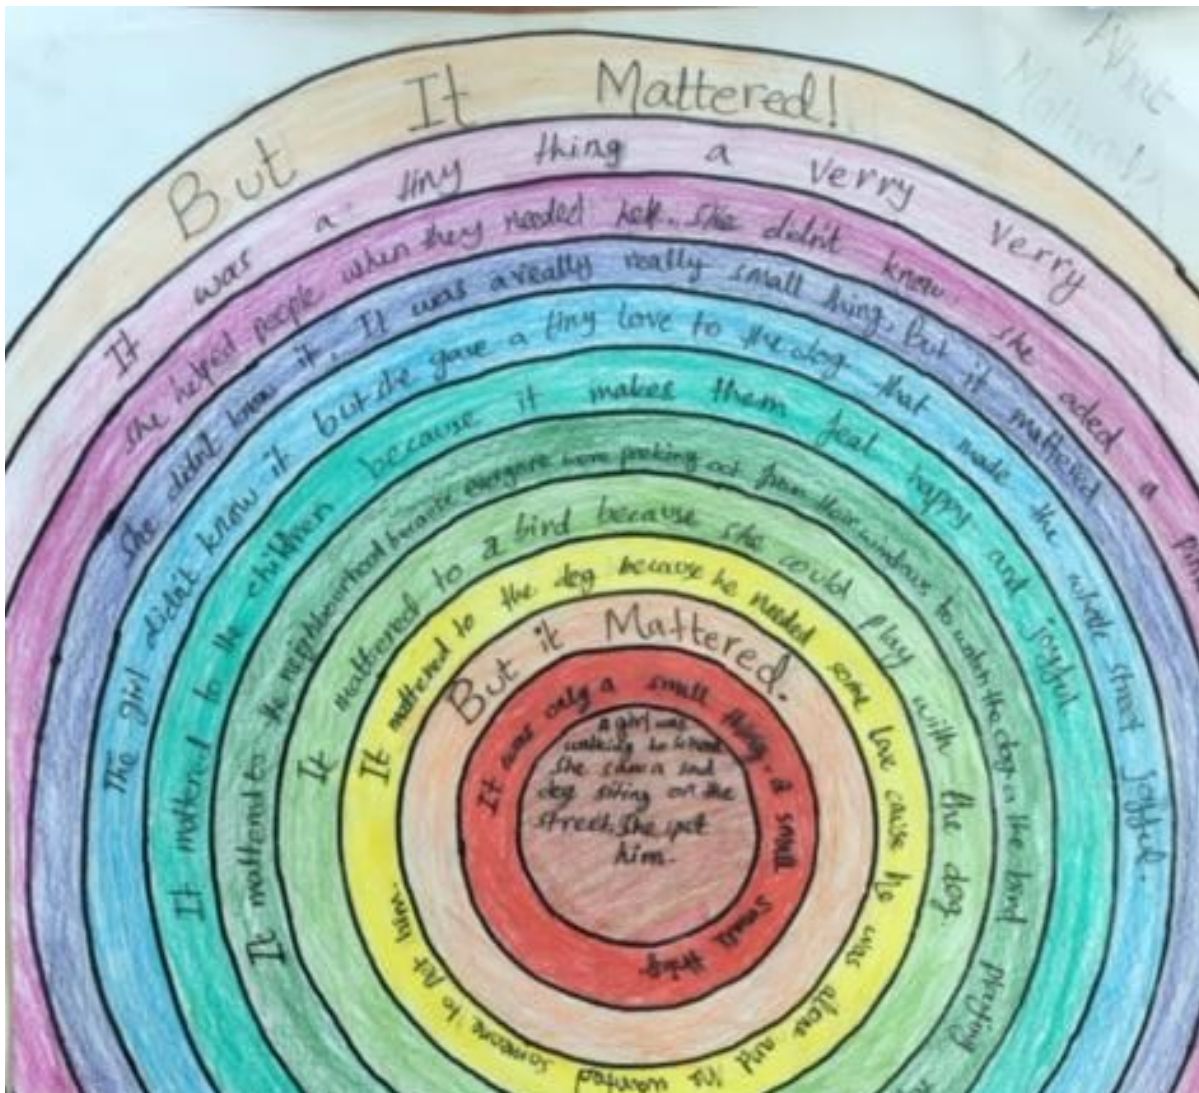 But It Mattered!
It was a tiny thing a verry verry
she helped people when they needed help. she didn't know. she aded a
She didn't know it. It was a really really small thing, but it mattered
The girl didn't know it but she gave a tiny love to the dog that made the whole street joyful.
It mattered to the children because it makes them feal happy and joyful
It mattered to the neighbourhood because everyone were peeking out from their windows to watch the dog n the bird playing
It mattered to a bird because she could play with the dog.
It mattered to the dog because he needed some love cause he was alone and he wanted someone to pet him.
But it Mattered.
It was only a small thing. a small small thing.
a girl was
walking to school
she saw a sad
dog siting on the
street. she pet
him.
What